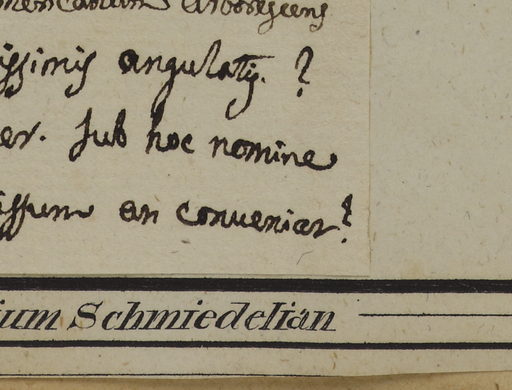 arborescens
issimis angulatis. ?
er. Sub hoc nomine
issum an conveniat?
ium Schmiedelian